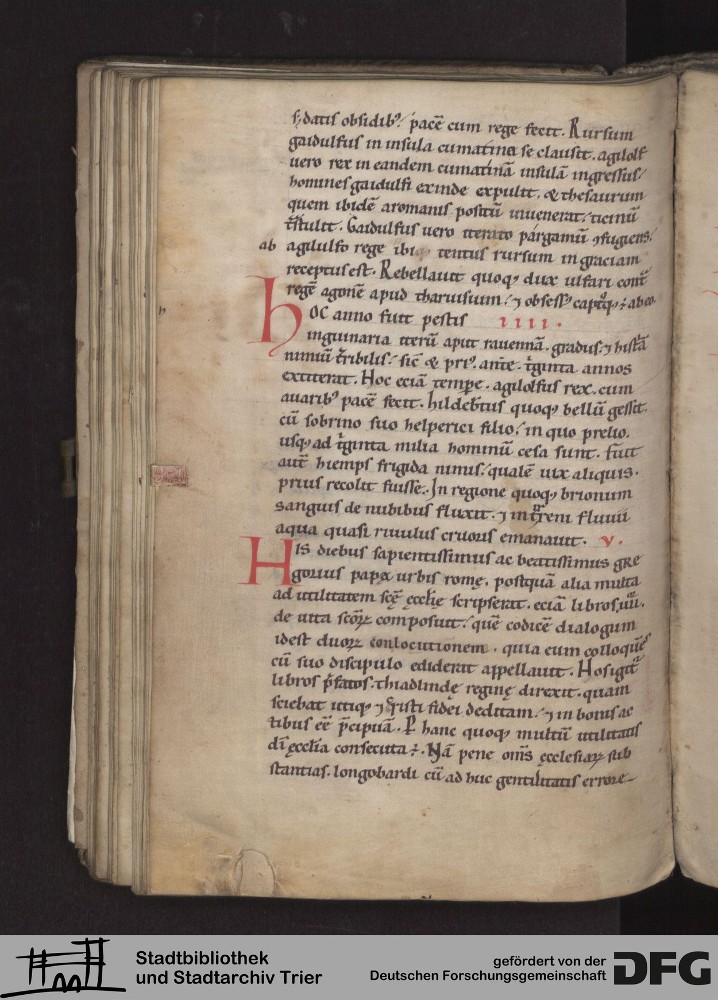 s; datis obsidib; pacē cum rege fecit. Rursum
gaidulfus in insula cumatina se clausit. agilolf
vero rex in eandem cumatinā insulā ingressus
homines gaidulfi exinde expulit. & thesaurum
quem ibidē aromanis positū invenerat. ticinū
t̄stulit. Gaidulfus vero iterato pargamū ꝯfugiens.
ab agilulfo rege ibiq; tentus rursum in graciam
receptus est. Rebellavit quoq; dux ulfari cont̄
regē agonē apud tharvisium. ⁊ obsess; captq; ÷ ab eo.
hOC anno fuit pestis IIII.
inguinaria iterū aput ravennā. gradus. ⁊ histā
nimiū t̄ribilis. sic̄ & pri; ante. tͥginta annos
extiterat. Hoc eciā tempe. agilolfus rex. cum
avarib; pacē fecit. hildebt̄us quoq; bellū gessit.
cū sobrino suo helperici filio. in quo prelio.
usq; ad tͥginta milia hominū cesa sunt. fuit
aut̄ hiemps frigida nimis. qualē vix aliquis.
prius recolit fuisse. In regione quoq; brionum
sanguis de nubibus fluxit. ⁊ int̄ reni fluvii
aqua quasi rivulus cruoris emanavit. V.
HIS diebus sapientissimus ac beatissimus gre
gorius papa urbis romę. postquā alia multa
ad utilitatem scę̄ ęccłię scripserat. eciā libros. iiii.
de vita scōꝝ composuit. quē codicē dialogum
idest duoꝝ conlocutionem. quia eum colloquēs
cū suo discipulo ediderat appellavit. Hos igit̄
libros p̄fatos. thiadlindę reginę direxit. quam
sciebat utiq; ⁊ cristi fidei deditam. ⁊ in bonis ac
tibus eē p̄cipuā. P hanc quoq; multū utilitatis
dī ęccłia consecuta ÷. Nā pene om̄s ęcclesiaꝝ sub
stantias. longobardi cū ad huc gentilitatis errore
Stadtbibliothek
und Stadtarchiv Trier
gefördert von der
Deutschen Forschungsgemeinschaft
DFG